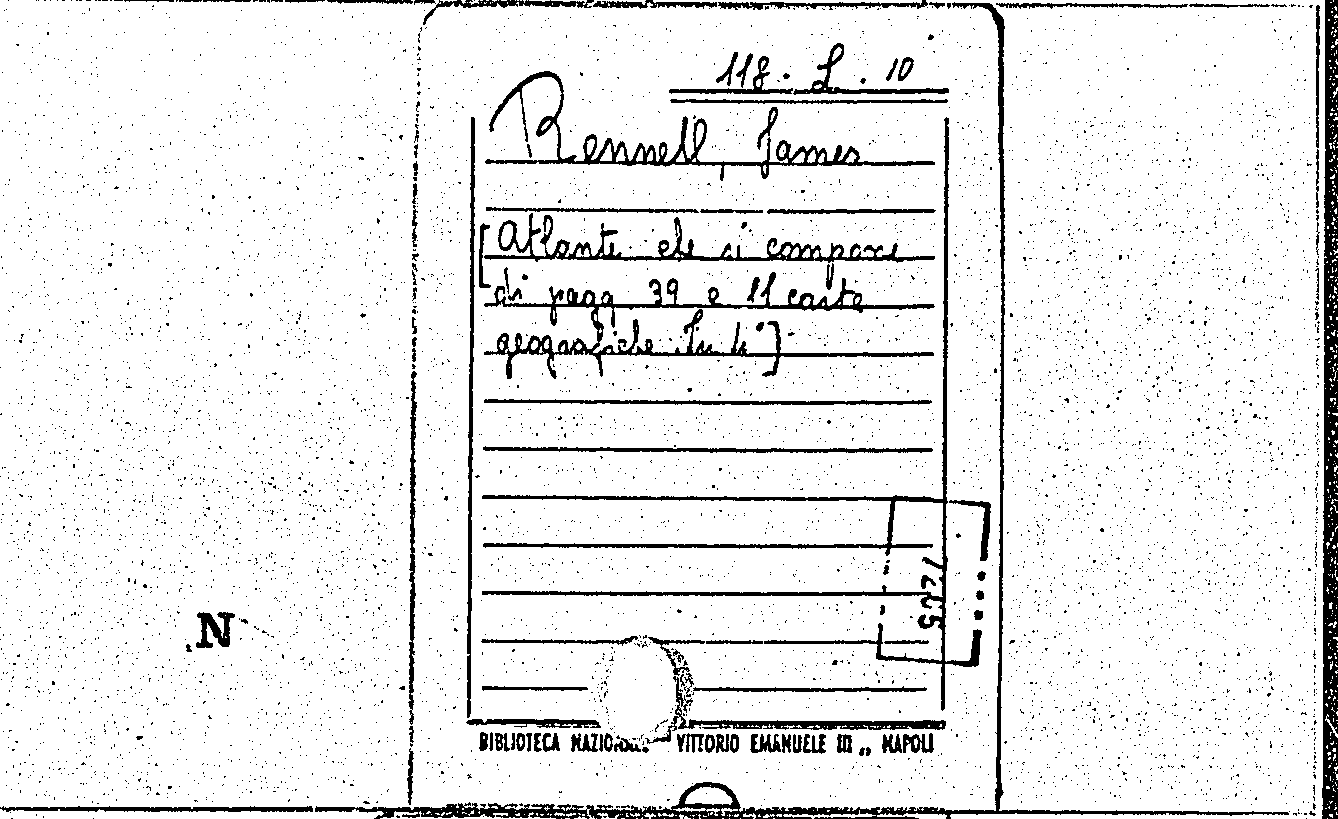 118. L. 10
Rennell, James
[Atlante che si compone
di pagg 39 e 11 carte
geografiche. In 4°]
7205
N
BIBLIOTECA NAZIONALE VITTORIO EMANUELE III „ NAPOLI